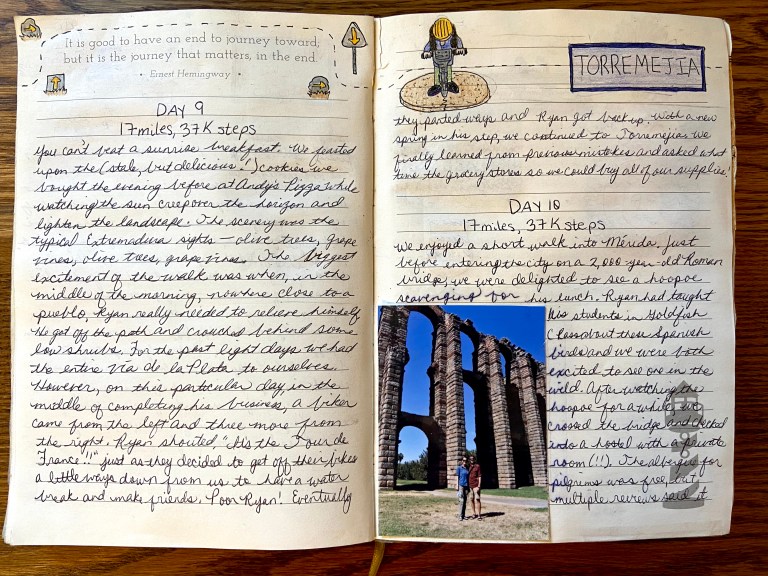 It is good to have an end to journey toward;
but it is the journey that matters, in the end.
• Ernest Hemingway •
DAY 9
17 miles, 37K steps
you can't beat a sunrise breakfast. We feasted
upon the (stale, but delicious!) cookies we
bought the evening before at Andy's Pizza while
watching the sun creep over the horizon and
lighten the landscape. The scenery was the
typical Extremadura sights – olive trees, grape
vines, olive trees, grape vines. The biggest
excitement of the walk was when, in the
middle of the morning, nowhere close to a
pueblo, Ryan really needed to relieve himself.
He got off the path and crouched behind some
low shrubs. For the past eight days we had
the entire Vía de la Plata to ourselves.
However, on this particular day in the
middle of completing his business, a biker
came from the left and three more from
the right. Ryan shouted, "It's the Tour de
France!!" just as they decided to get off their bikes
a little ways down from us to have a water
break and make friends. Poor Ryan! Eventually
TORREMEJIA
they parted ways and Ryan got back up. With a new
spring in his step, we continued to Torremejia. We
finally learned from previous mistakes and asked what
time the grocery stores so we could buy all of our supplies!
DAY 10
17 miles, 37K steps
we enjoyed a short walk into Mérida. Just
before entering the city on a 2,000-year-old Roman
bridge, we were delighted to see a hoopoe
scavenging for his lunch. Ryan had taught
his students in Goldfish
Class about these Spanish
birds and we were both
excited to see one in the
wild. After watching the
hoopoe for a while, we
crossed the bridge and checked
into a hostel with a private
room (!!). The albergue for
pilgrims was free, but
multiple reviews said it